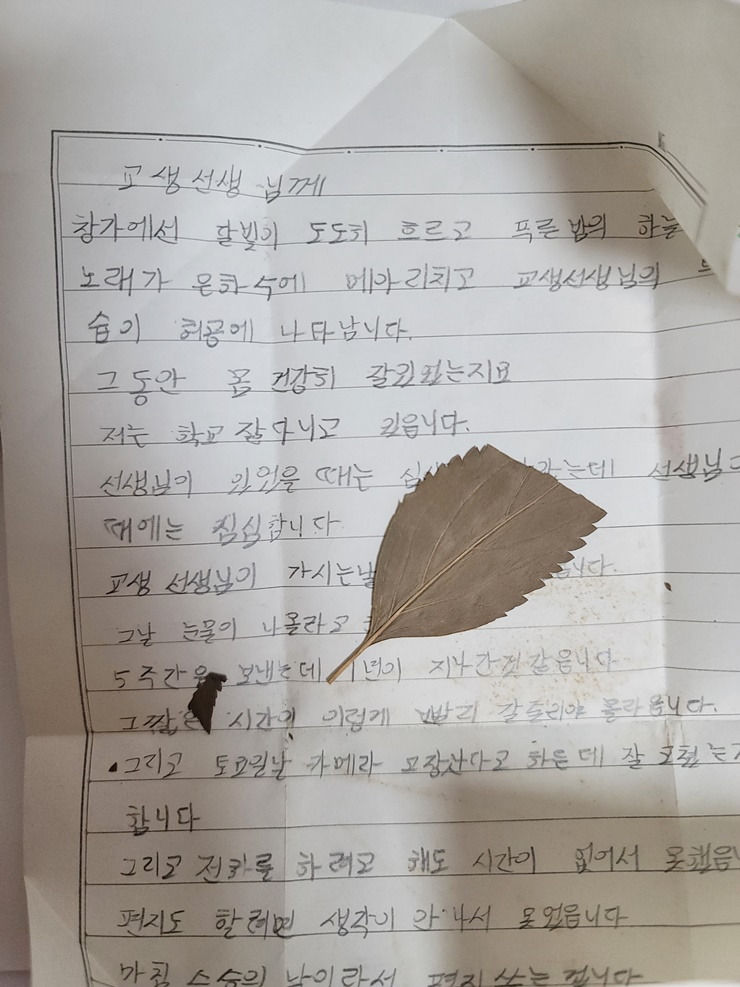 교생선생님께
창가에선 달빛이 도도히 흐르고 푸른밤의 하늘
노래가 은하수에 메아리치고 교생선생님의
습이 허공에 나타납니다.
그동안 몸 건강히 잘있었는지요
저는 학교 잘다니고 있읍니다.
선생님이 있었을 때는 는데 선생님
때에는 심심합니다.
교생 선생님이 가시는날
그날 눈물이 나올라고
5주간을 보냈는데 1년이 지나간것같읍니다
시간이 이렇게 빨리 갈줄이야 몰라읍니다.
그리고 토요일날 카메라 고장났다고 하은데 잘
합니다
그리고 전화를 하려고 해도 시간이 없어서 못했읍
편지도 할려면 생각이 안나서 못었읍니다
마침 스승의 날이라서 편지 쓰는 겁니다